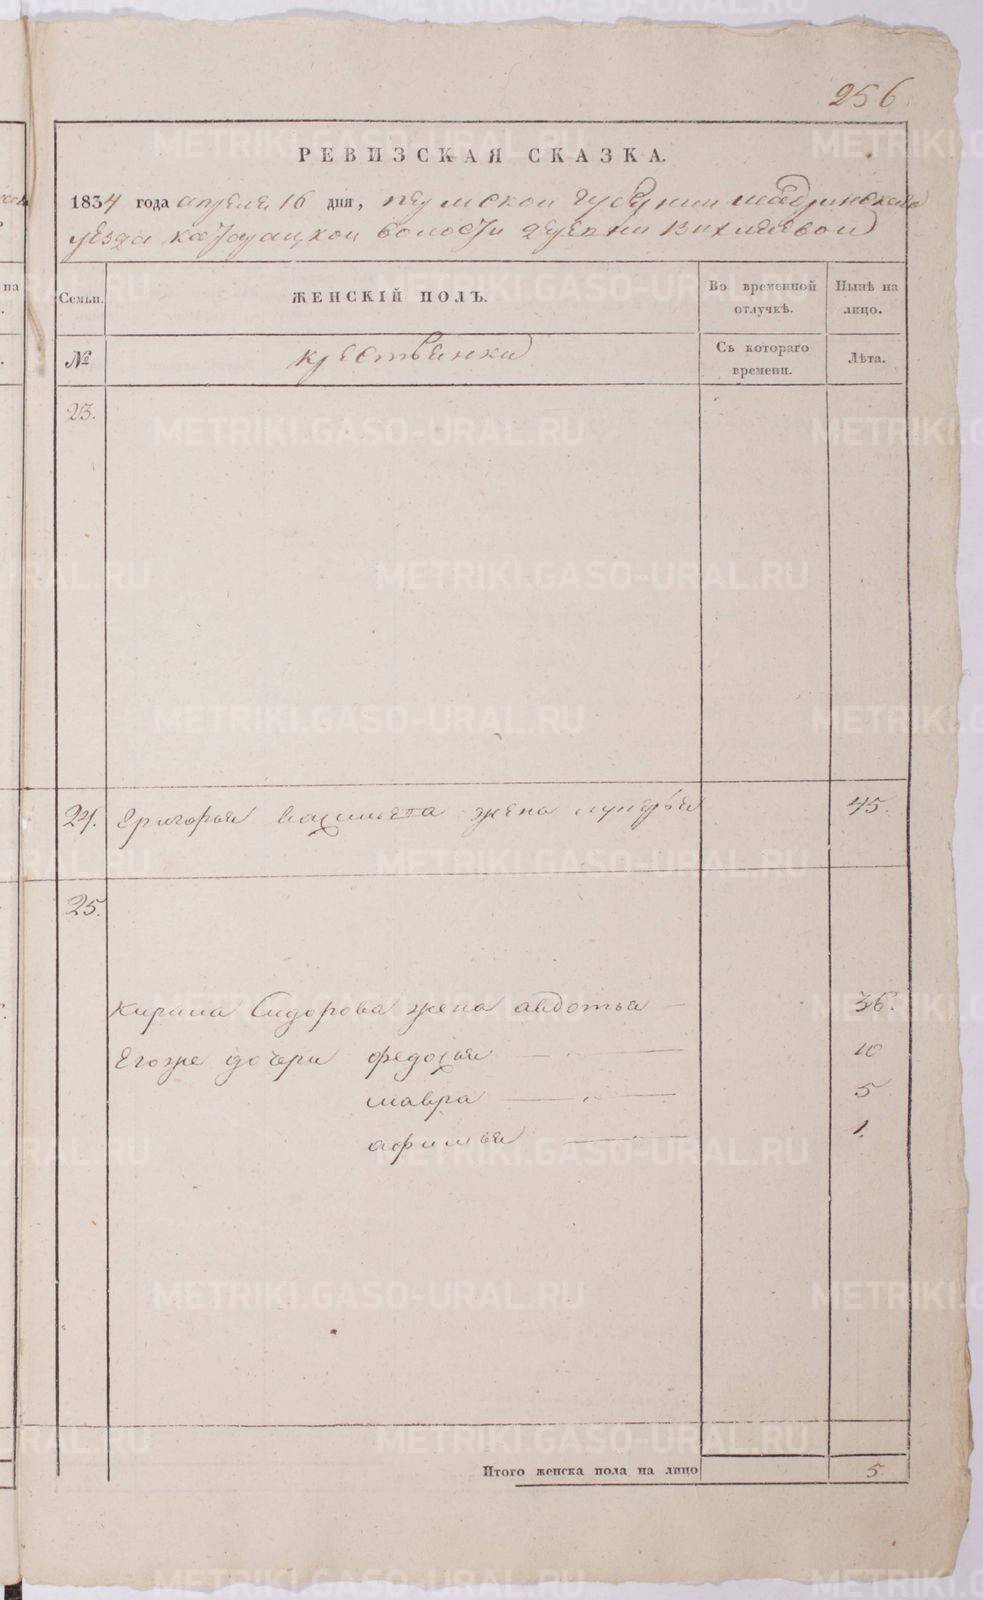 256
РЕВИЗСКАЯ СКАЗКА.
1834 года апреля 16 дня, пермской губернии шадринскаго
уезда волости деревни вихляевой
Семьи.
ЖЕНСКІЙ ПОЛЪ.
Во временной отлучкѣ.
Нынѣ на лицо.
№
крестьянки
Съ котораго времени.
Лѣта.
23.
24. Григорья жена лукерья 45.
25.
Кирила Сидорова жена авдотья 36.
Егоже дочери федосья 10
мавра 5
афимья 1.
Итого женска пола на лицо 5
METRIKI.GASO-URAL.RU